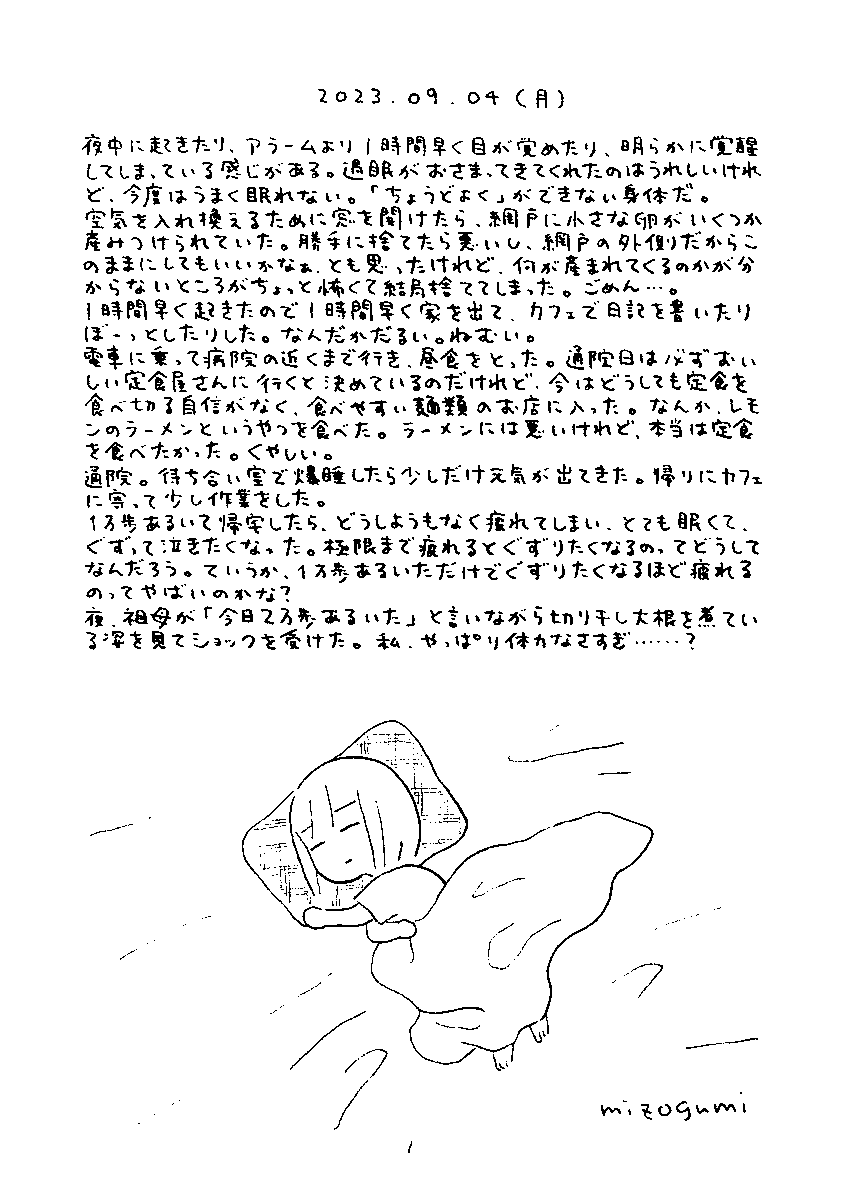 2023.09.04(月)
夜中に起きたり、アラームより1時間早く目が覚めたり、明らかに覚醒
してしまっている感じがある。過眠がおさまってきてくれたのはうれしいけれ
ど、今度はうまく眠れない。「ちょうどよく」ができない身体だ。
空気を入れ換えるために窓を開けたら、網戸に小さな卵がいくつか
産みつけられていた。勝手に捨てたら悪いし、網戸の外側だからこ
のままにしてもいいかなぁ、とも思ったけれど、何が産まれてくるのかが分
からないところがちょっと怖くて結局捨ててしまった。ごめん…。
1時間早く起きたので1時間早く家を出て、カフェで日記を書いたり
ぼーっとしたりした。なんだかだるい。ねむい。
電車に乗って病院の近くまで行き、昼食をとった。通院日は必ずおい
しい定食屋さんに行くと決めているのだけれど、今はどうしても定食を
食べ切る自信がなく、食べやすい麺類のお店に入った。なんか、レモ
ンのラーメンというやつを食べた。ラーメンには悪いけれど、本当は定食
を食べたかった。くやしい。
通院。待ち合い室で爆睡したら少しだけ元気が出てきた。帰りにカフェ
に寄って少し作業をした。
1万歩あるいて帰宅したら、どうしようもなく疲れてしまい、とても眠くて、
ぐずって泣きたくなった。極限まで疲れるとぐずりたくなるのってどうして
なんだろう。ていうか、1万歩あるいただけでぐずりたくなるほど疲れる
のってやばいのかな?
夜、祖母が「今日2万歩あるいた」と言いながら切り干し大根を煮てい
る姿を見てショックを受けた。私、やっぱり体力なさすぎ……?
mizogumi
1